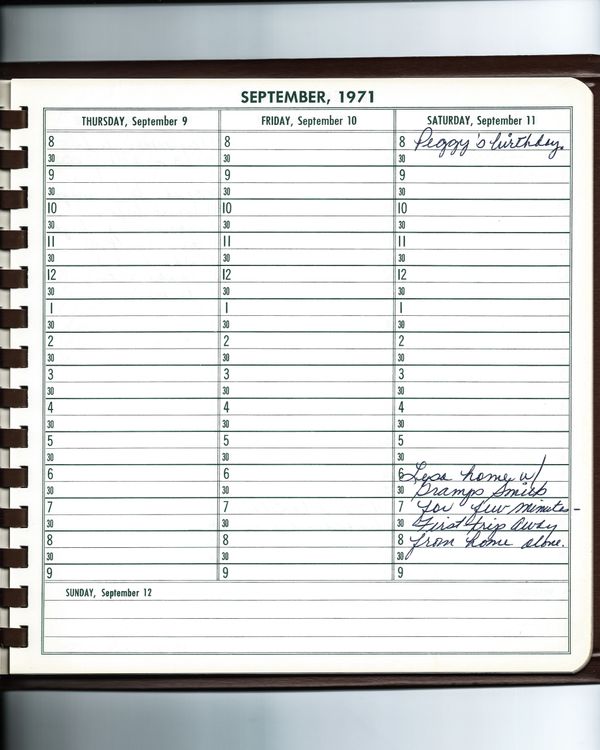 SEPTEMBER, 1971
THURSDAY, September 9
FRIDAY, September 10
SATURDAY, September 11
8 8 8 Peggy's birthday.
30 30 30
9 9 9
30 30 30
10 10 10
30 30 30
11 11 11
30 30 30
12 12 12
30 30 30
1 1 1
30 30 30
2 2 2
30 30 30
3 3 3
30 30 30
4 4 4
30 30 30
5 5 5
30 30 30
6 6 6 Lesa home w/
30 30 30 Gramps
7 7 7 for few minutes-
30 30 30 First trip away
8 8 8 from home alone.
30 30 30
9 9 9
SUNDAY, September 12